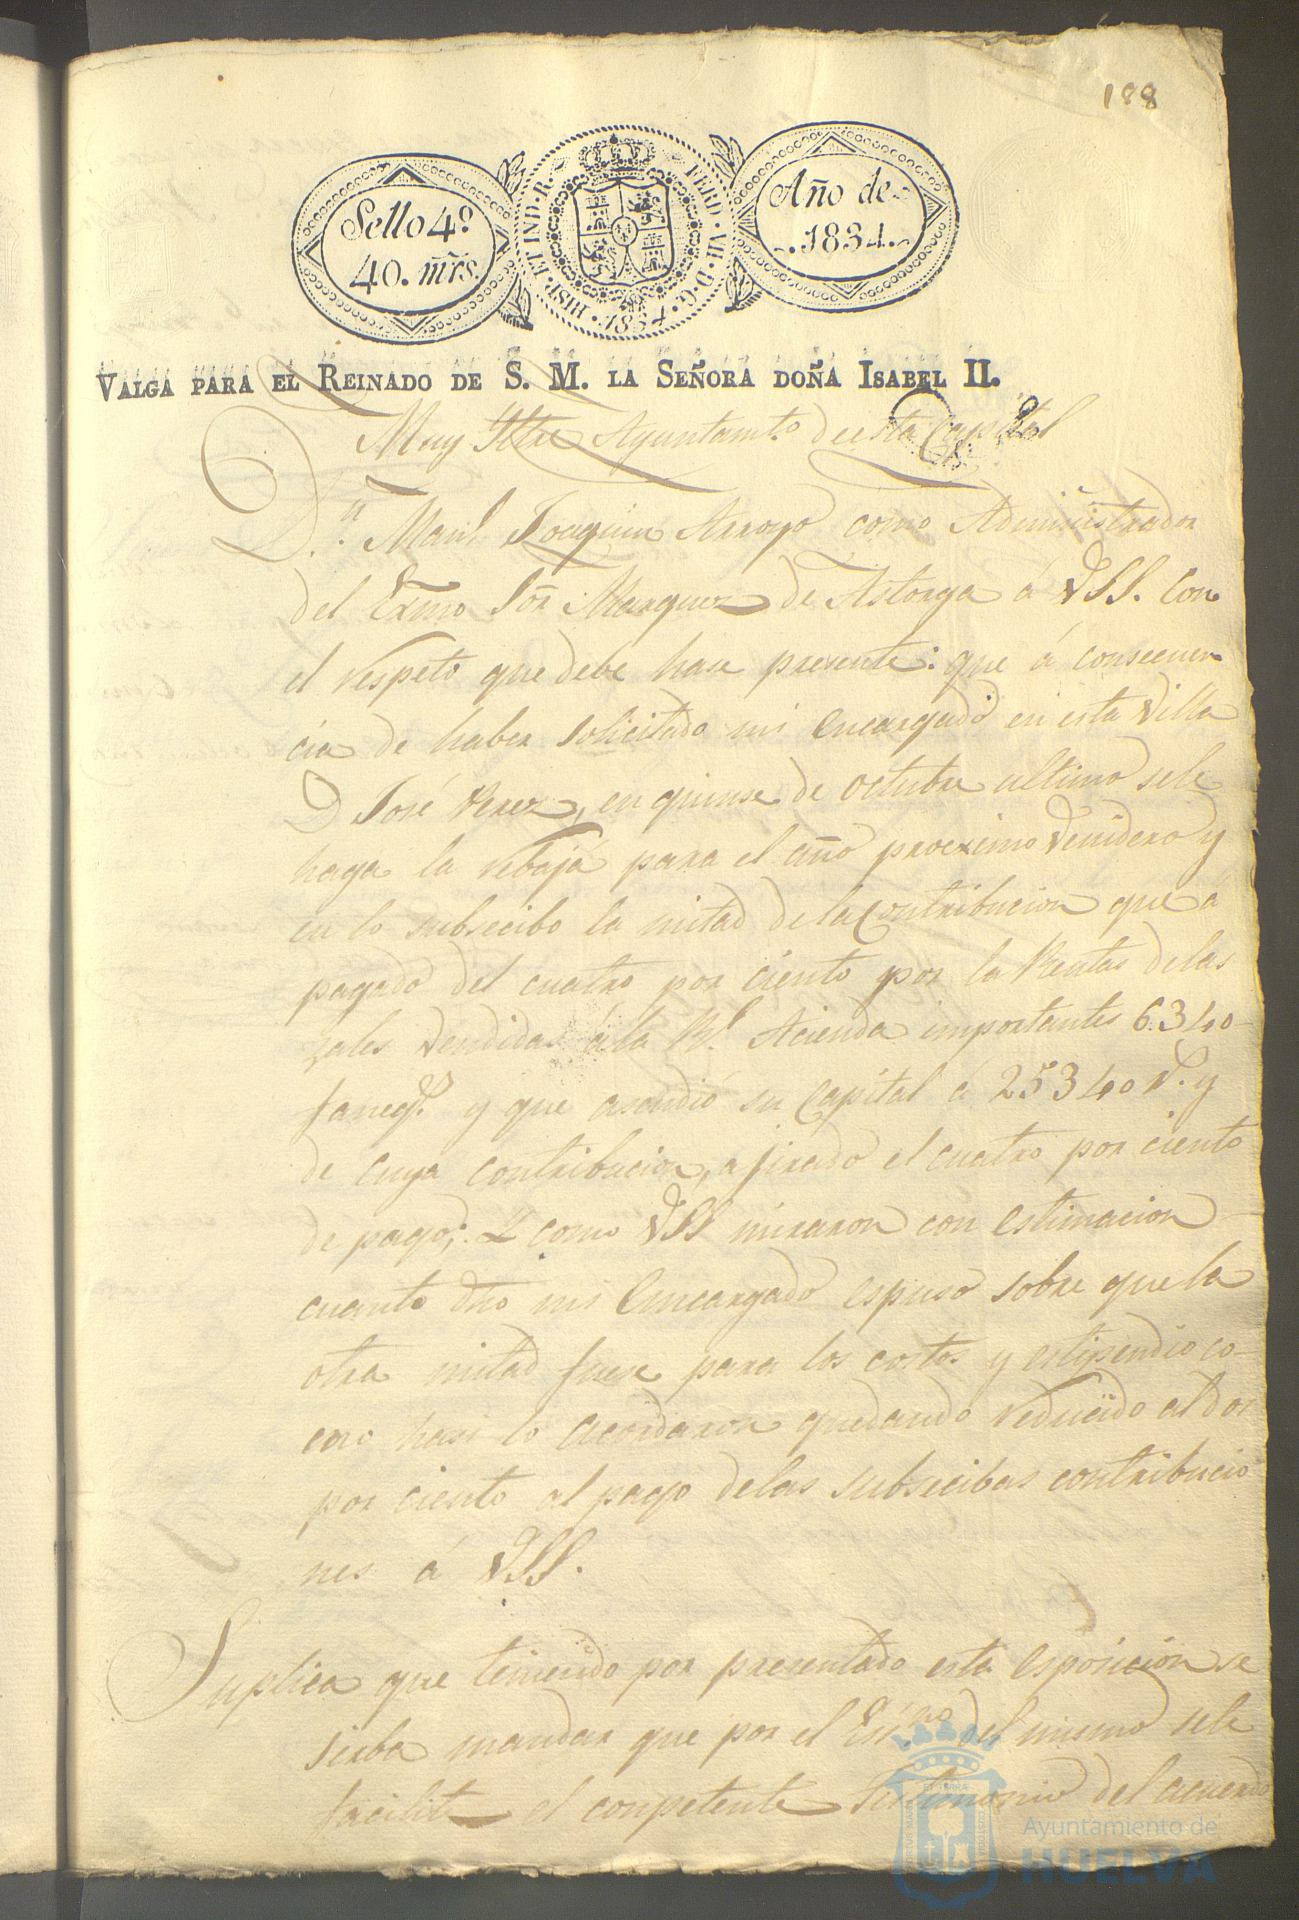 188
Sello 4º
40. mrs.
HISP. ET IND. R.
FERD. VII. D. G.
1834.
Año de
1834.
VALGA PARA EL REINADO DE S. M. LA SEÑORA DOÑA ISABEL II.
Muy Iltre Ayuntamto. de esta Capital
D.n Manl. Joaquin Arroyo como Administrador
del Exmo Sor. Marques de Astorga á VSS. con
el respeto que debe hase presente: que á consecuen
cia de haber solicitado mi encargado en esta Villa
D José Perez, en quinse de octubre ultimo sele
haga la rebaja para el año procximo Venidero y
en lo subsecibo la mitad dela Contribucion que a
pagado del cuatro por ciento por la Rentas delas
zales Vendidas á la Rl. Acienda importantes 6.340
faneqs. y que asendió su Capital á 25340 r. y
de cuya contribucion, afirado el cuatro por ciento
de pago; Y como VSS miraron con estimacion
cuanto dho mi Encargado espuso sobre que la
otra mitad fuese para los costos y estipendio co-
cero hasi lo acordaron quedando reducido al dos
por ciento al pago delas subsecibas contribucio
nes á VSS.
Suplica que teniendo por presentado esta esposicion se
sirba mandar que por el Esno. del mismo sele
facilite el conpetente Testimonio del acuerdo
Ayuntamiento de
HUELVA